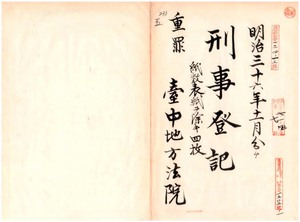 明治三十六年十一月分
刑事登記
紙數表紙ヲ除キ四枚
重罪
臺中地方法院